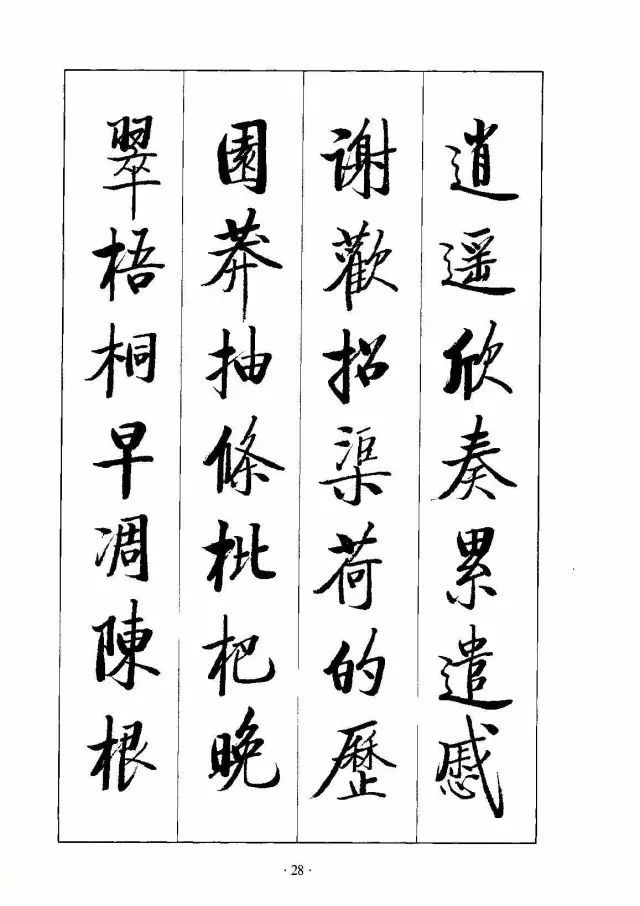 逍遥欣奏累遣慼
谢歡招渠荷的歷
園莽抽條枇杷晚
翠梧桐早凋陳根
· 28 ·